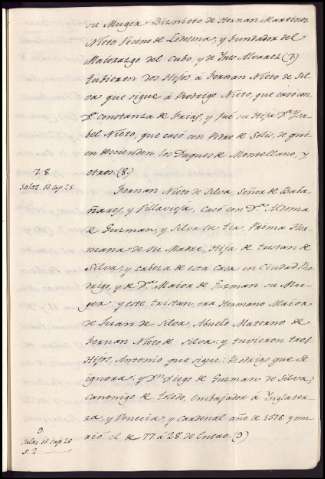 su Muger Bisnieto de Hernan Martinez
Nieto Vecino de Ledesma, y fundador del
Maiorazgo del Cubo, y de Ines Alvarez (7)
tubieron dos Hijos a Fernan Nieto de Sil-
va que sigue a Rodrigo Nieto, que caso con
D.ª Constanza de Frias, y fue su Hija D.ª Ysa-
bel Nieto, que caso con Pedro de Solis, de quien
descienden los Duques de Montellano, y
otros (8)
28
Salaz. lib. cap. 25
Fernan Nieto de Silva, Señor de Baba-
ñares, y Villavieja, Casó con D.ª
de Guzman, y Silva su tia Prima Her-
mana de su Madre, Hija de Tristan de
Silva, y cabeza de esta casa en Ciudad Ro-
drigo, y de D.ª Maior de Guzman su Mu-
ger y este Tristan, era Hermano Maior
de Juan de Silva, Abuelo Materno de
Fernan Nieto de Silva, y tuvieron tres
Hijos, Antonio que sigue: Rodrigo que se
ignora, y Dn. Diego de Guzman de Silva,
canonigo de Toledo, embajador a Ynglater-
ra, y Venecia, y Cardenal año de 1578 y mu-
rió el de 77 a 28 de Enero. (9)
9
Salaz. lib. cap. 20
n. 2